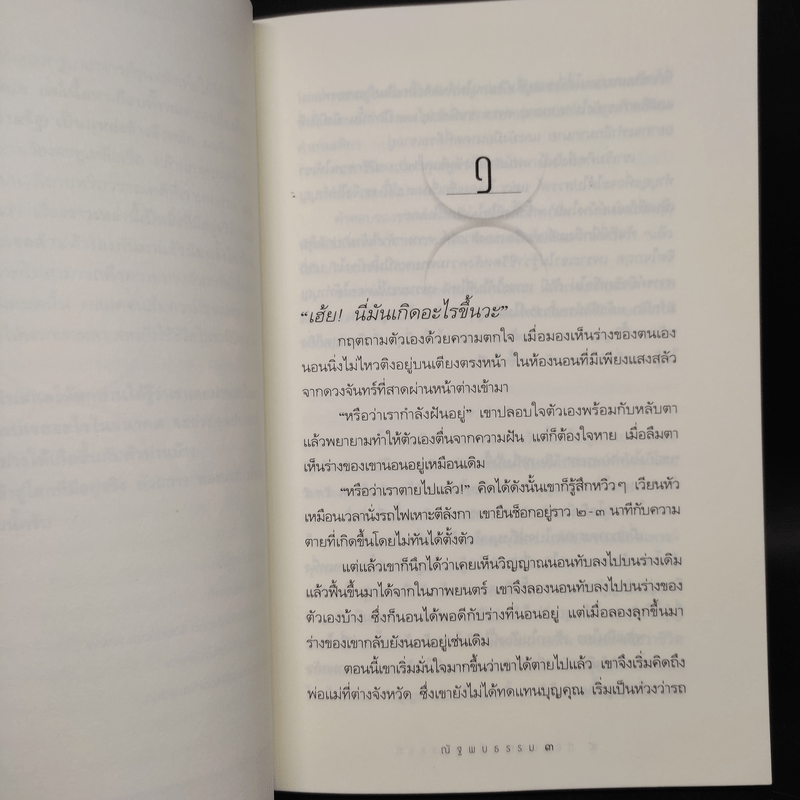 ๑
“เฮ้ย! นี่มันเกิดอะไรขึ้นวะ”
กฤตถามตัวเองด้วยความตกใจ เมื่อมองเห็นร่างของตนเอง
นอนนิ่งไม่ไหวติงอยู่บนเตียงตรงหน้า ในห้องนอนที่มีเพียงแสงสลัว
จากดวงจันทร์ที่สาดผ่านหน้าต่างเข้ามา
“หรือว่าเรากำลังฝันอยู่” เขาปลอบใจตัวเองพร้อมกับหลับตา
แล้วพยายามทำให้ตัวเองตื่นจากความฝัน แต่ก็ต้องใจหาย เมื่อลืมตา
เห็นร่างของเขานอนอยู่เหมือนเดิม
“หรือว่าเราตายไปแล้ว!” คิดได้ดังนั้นเขาก็รู้สึกหวิวๆ เวียนหัว
เหมือนเวลานั่งรถไฟเหาะตีลังกา เขายืนช็อกอยู่ราว ๒-๓ นาทีกับความ
ตายที่เกิดขึ้นโดยไม่ทันได้ตั้งตัว
แต่แล้วเขาก็นึกได้ว่าเคยเห็นวิญญาณนอนทับลงไปบนร่างเดิม
แล้วฟื้นขึ้นมาได้จากในภาพยนตร์ เขาจึงลองนอนทับลงไปบนร่างของ
ตัวเองบ้าง ซึ่งก็นอนได้พอดีกับร่างที่นอนอยู่ แต่เมื่อลองลุกขึ้นมา
ร่างของเขากลับยังนอนอยู่เช่นเดิม
ตอนนี้เขาเริ่มมั่นใจมากขึ้นว่าเขาได้ตายไปแล้ว เขาจึงเริ่มคิดถึง
พ่อแม่ที่ต่างจังหวัด ซึ่งเขายังไม่ได้ทดแทนบุญคุณ เริ่มเป็นห่วงว่ารถ
ณัฐพบธรรม ๓